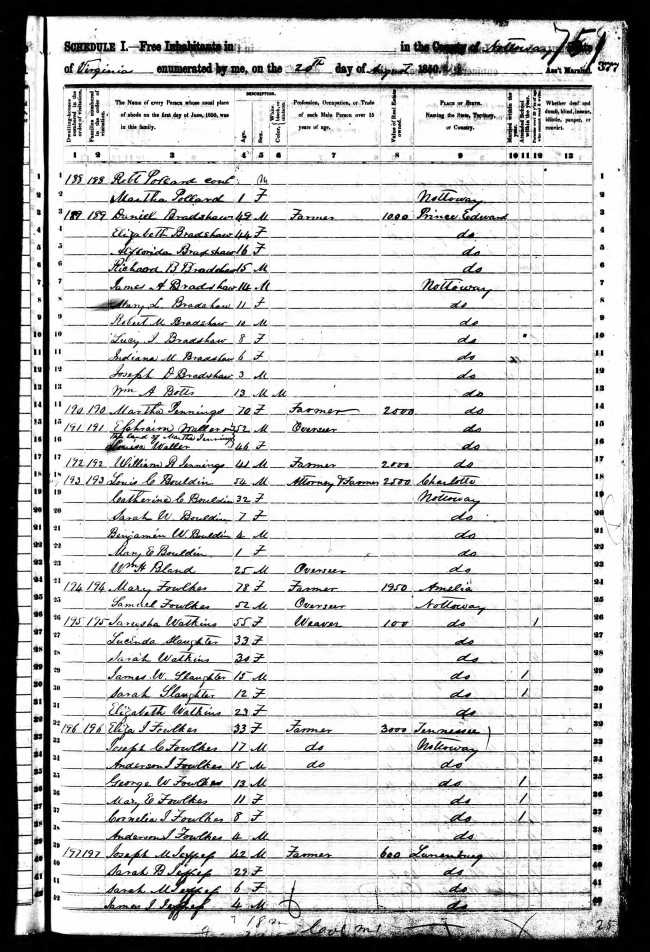 759
SCHEDULE I.—Free Inhabitants in in the County of Nottoway State
of Virginia enumerated by me, on the 20th day of August 1850. Ass't Marshal. 377
DESCRIPTION.
Dwelling-houses numbered in the order of visitation. Families numbered in the order of visitation. The Name of every Person whose usual place of abode on the first day of June, 1850, was in this family. Age. Sex. Color, White, black, or mulatto. Profession, Occupation, or Trade of each Male Person over 15 years of age. Value of Real Estate owned. PLACE OF BIRTH. Naming the State, Territory, or Country. Married within the year. Attended School within the year. Persons over 20 y'rs of age who cannot read & write. Whether deaf and dumb, blind, insane, idiotic, pauper, or convict.
1 2 3 4 5 6 7 8 9 10 11 12 13
1 188 188 Robt Pollard cont M 1
2 Martha Pollard 1 F Nottoway 2
3 189 189 Daniel Bradshaw 49 M Farmer 1000 Prince Edward 3
4 Elizabeth Bradshaw 44 F do 4
5 Bradshaw 16 F do 5
6 Richard B Bradshaw 15 M do 6
7 James A Bradshaw 14 M Nottoway 7
8 Mary L Bradshaw 11 F do 8
9 Robert M Bradshaw 10 M do 9
10 Lucy J Bradshaw 8 F do 10
11 Indiana M Bradshaw 6 F do 11
12 Joseph D Bradshaw 3 M do 12
13 Wm A Botts 13 M M do 13
14 190 190 Martha Jennings 70 F Farmer 2000 do 14
15 191 191 Ephraim Waller on 52 M Overseer 15
the land of Martha Jennings
16 Louisa Waller 46 F do 16
17 192 192 William R Jennings 41 M Farmer 2000 do 17
18 193 193 Louis C Bouldin 54 M Attorney & Farmer 2500 Charlotte 18
19 Catherine C Bouldin 32 F Nottoway 19
20 Sarah W Bouldin 7 F do 20
21 Benjamin W Bouldin 4 M do 21
22 Mary E Bouldin 1 F do 22
23 Wm H Bland 25 M Overseer do 23
24 194 194 Mary Fowlkes 78 F Farmer 1950 Amelia 24
25 Samuel Fowlkes 52 M Overseer Nottoway 25
26 195 195 Watkins 55 F Weaver 100 do 1 26
27 Lucinda Slaughter 33 F do 27
28 Sarah Watkins 30 F do 28
29 James W. Slaughter 15 M do 1 29
30 Sarah Slaughter 12 F do 1 30
31 Elizabeth Watkins 23 F do 31
32 196 196 Eliza J Fowlkes 33 F Farmer 3000 Tennessee 32
33 Joseph C Fowlkes 17 M do Nottoway 33
34 Anderson J Fowlkes 15 M do do 34
35 George W Fowlkes 13 M do 1 35
36 Mary E Fowlkes 11 F do 1 36
37 Cornelia J Fowlkes 8 F do 1 37
38 Anderson J Fowlkes 4 M do 38
39 197 197 Joseph M 42 M Farmer 600 Lunenburg 39
40 Sarah B 29 F do 40
41 Sarah M 6 F do 41
42 James J 4 M do 42
25